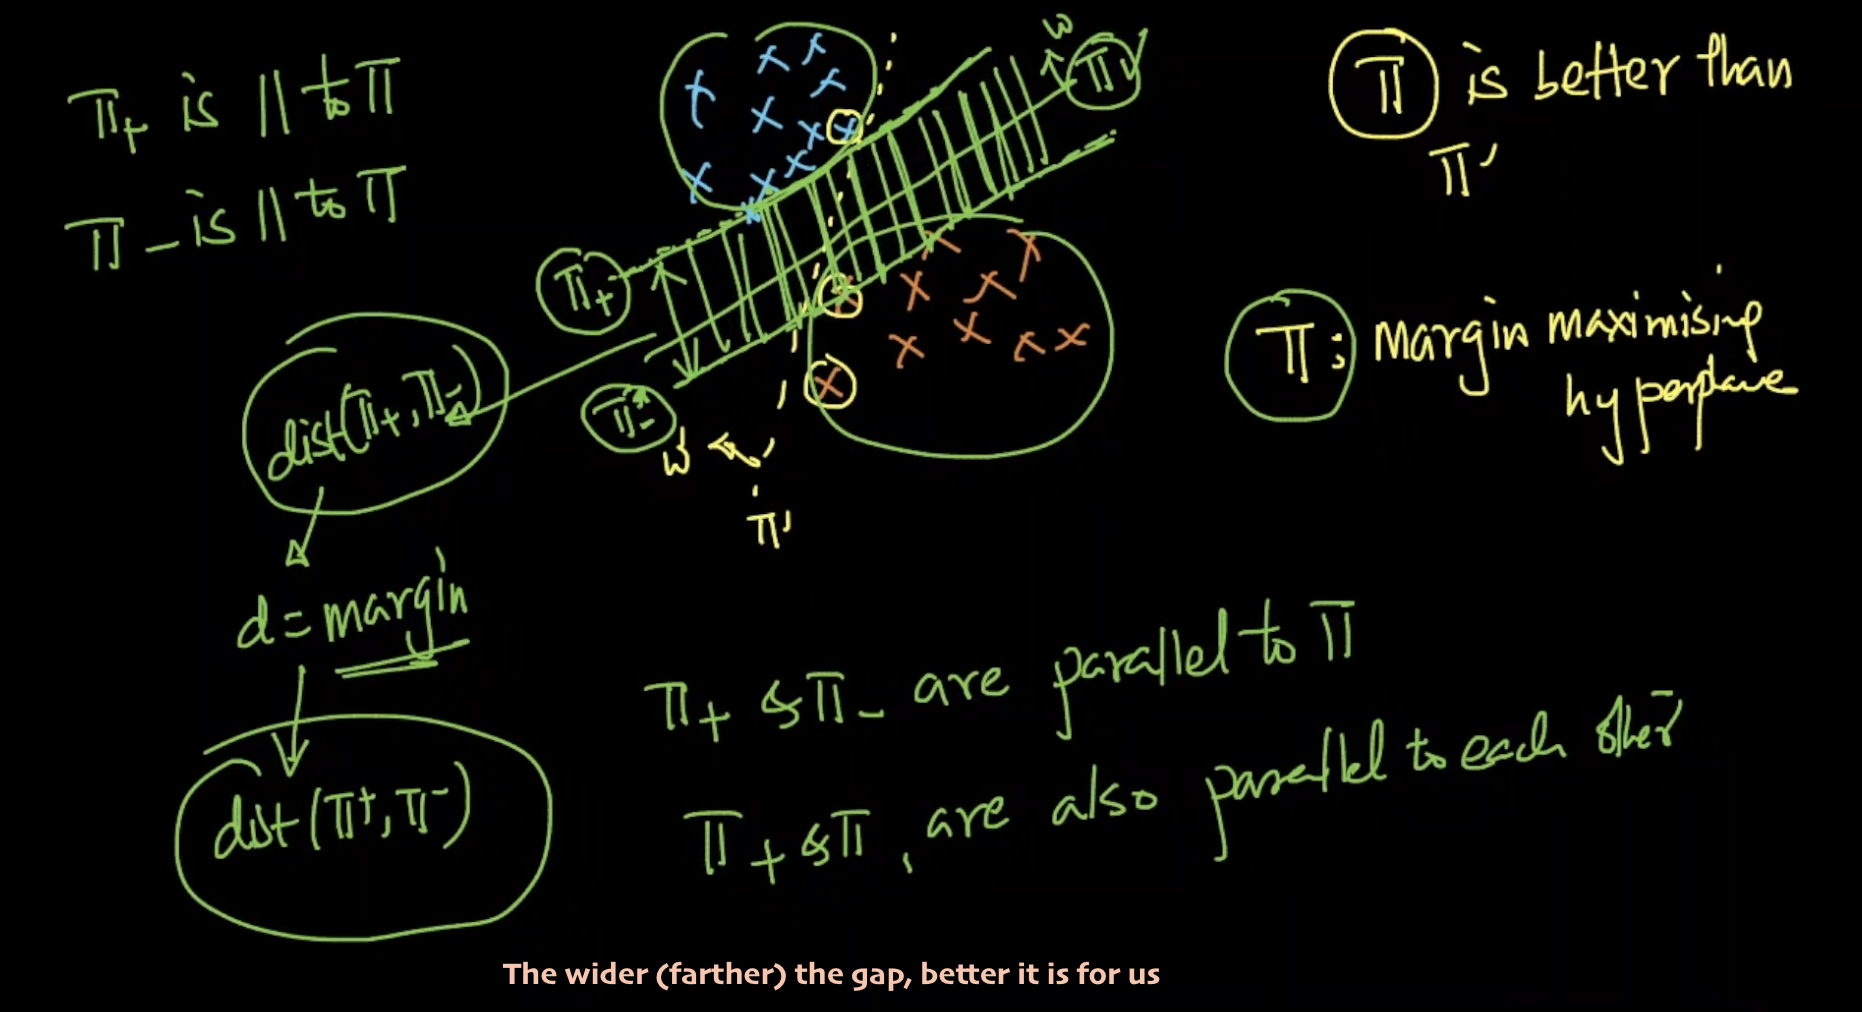 π+ is || to π
π- is || to π
w
π
π is better than
π'
π+
π-
dist(π+, π-)
w'
π'
π: Margin maximising
hyperplane
d = margin
dist(π+, π-)
π+ & π- are parallel to π
π+ & π, are also parallel to each other
The wider (farther) the gap, better it is for us